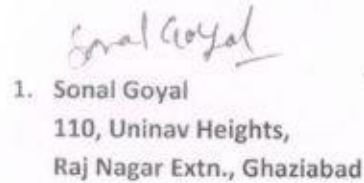 Sonal Goyal
1. Sonal Goyal
110, Uninav Heights,
Raj Nagar Extn., Ghaziabad